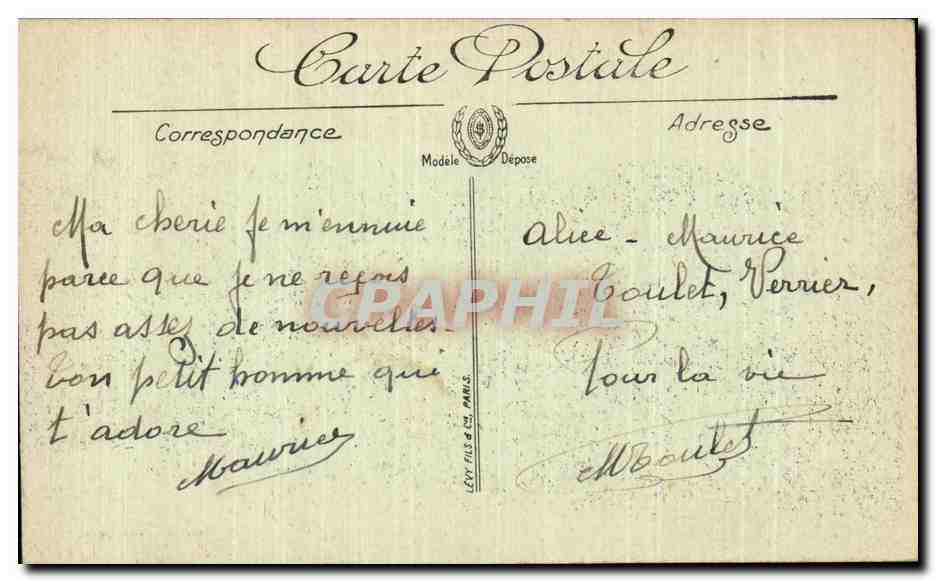 Carte Postale
Correspondance
Adresse
Modèle Déposé
Ma cherie je m'ennuie
parce que je ne reçois
pas assez de nouvelles.
ton petit homme qui
t'adore
Maurice
LÉVY FILS & Cie, PARIS.
Alice - Maurice
Toulet, Verrier,
Pour la vie
MToulet
CPAPHIL